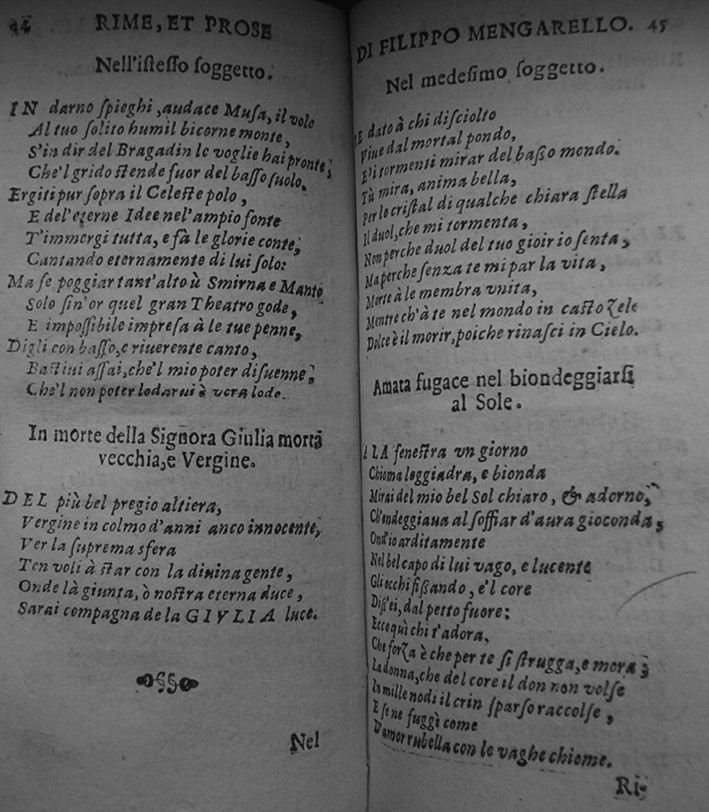 44 RIME, ET PROSE
Nell'iſteſſo ſoggetto.
IN darno ſpieghi, audace Muſa, il volo
Al tuo ſolito humil bicorne monte,
S'in dir del Bragadin le voglie hai pronte;
Che'l grido ſtende fuor del baſſo ſuolo.
Ergiti pur ſopra il Celeſte polo,
E del'eterne Idee nel'ampio fonte
T'immergi tutta, e fà le glorie conte;
Cantando eternamente di lui ſolo:
Ma ſe poggiar tant'alto ù Smirna e Manto
Solo ſin'or quel gran Theatro gode,
E impoſſibile impreſa à le tue penne,
Digli con baſſo, e riuerente canto,
Baſtiui aſſai, che'l mio poter diſuenne;
Che'l non poter lodarui è vera lode.
In morte della Signora Giulia morta
vecchia, e Vergine.
DEL più bel pregio altiera,
Vergine in colmo d'anni anco innocente,
Ver la ſuprema sfera
Ten voli à ſtar con la diuina gente,
Onde là giunta, ò noſtra eterna duce,
Sarai compagna de la GIVLIA luce.
Nel
DI FILIPPO MENGARELLO. 45
Nel medeſimo ſoggetto.
E dato à chi diſciolto
Viue dal mortal pondo,
E'i tormenti mirar del baſſo mondo.
Tù mira, anima bella,
Per lo criſtal di qualche chiara ſtella
Il duol, che mi tormenta,
Non perche duol del tuo gioir io ſenta,
Ma perche ſenza te mi par la vita,
Morte à le membra vnita,
Mentre ch'à te nel mondo in caſto Zelo
Dolce è il morir, poiche rinaſci in Cielo.
Amata fugace nel biondeggiarſi
al Sole.
A LA feneſtra vn giorno
Chioma leggiadra, e bionda
Mirai del mio bel Sol chiaro, & adorno,
Ch'ondeggiaua al ſoffiar d'aura gioconda,
Ond'io arditamente
Nel bel capo di lui vago, e lucente
Gli occhi fiſſando, e'l core
Diſſ'ei, dal petto fuore:
Ecco quì chi t'adora,
Che forZa è che per te ſi ſtrugga, e mora;
La donna, che del core il don non volſe
In mille nodi il crin ſparſo raccolſe,
E ſe ne fuggì come
D'amor rubella con le vaghe chiome.
Ri-